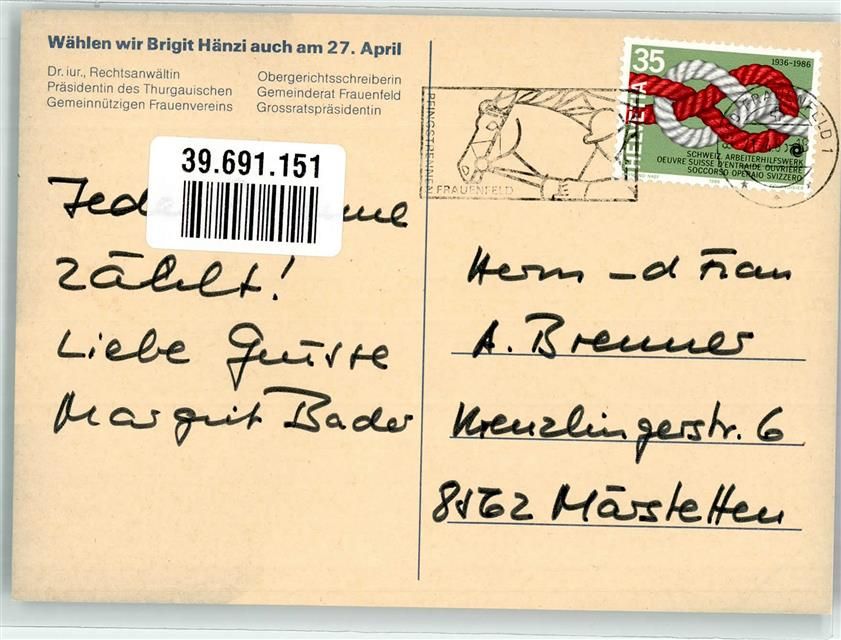 Wählen wir Brigit Hänzi auch am 27. April
Dr. iur., Rechtsanwältin
Präsidentin des Thurgauischen
Gemeinnützigen Frauenvereins
Obergerichtsschreiberin
Gemeinderat Frauenfeld
Grossratspräsidentin
39.691.151
zählt!
Liebe Grüsse
Margrit Bader
PFINGSTRENNEN
FRAUENFELD
FRAUENFELD 1
35
1936-1986
HELVETIA
SCHWEIZ. ARBEITERHILFSWERK
OEUVRE SUISSE D'ENTRAIDE OUVRIÈRE
SOCCORSO OPERAIO SVIZZERO
Herrn _d Frau
A. Brenner
Kreuzlingerstr. 6
8562 Märstetten